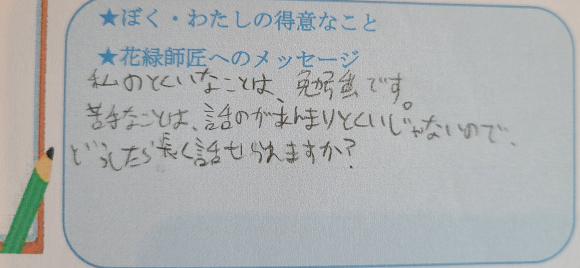 ★ぼく・わたしの得意なこと
★花緑師匠へのメッセージ
私のとくいなことは、勉強です。
苦手なことは、話のがあんまりとくいじゃないので、
どうしたら長く話せられますか?